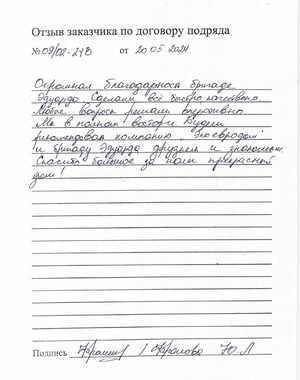 Отзыв заказчика по договору подряда
№ 09/02-24В от 20.05 2024
Огромная благодарность бригаде
Эдуарда Сделали всё быстро качественно.
Любые вопросы решали оперативно.
Мы в полном восторге Будем
рекомендовать компанию "Экоевродом"
и бригаду Эдуарда друзьям и знакомым.
Спасибо большое за наш прекрасный
дом!
Подпись / Фролова Ю.Л